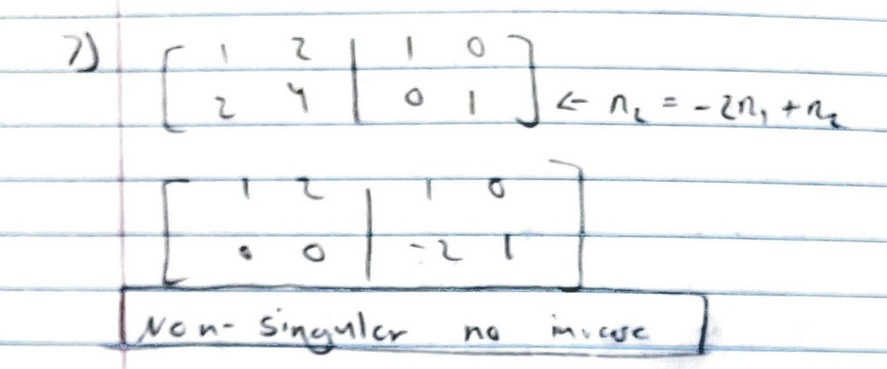 7) [ 1 2 | 1 0 ]
[ 2 4 | 0 1 ] ← r₂ = -2r₁ + r₂
[ 1 2 | 1 0 ]
[ 0 0 | -2 1 ]
Non-singular no inverse